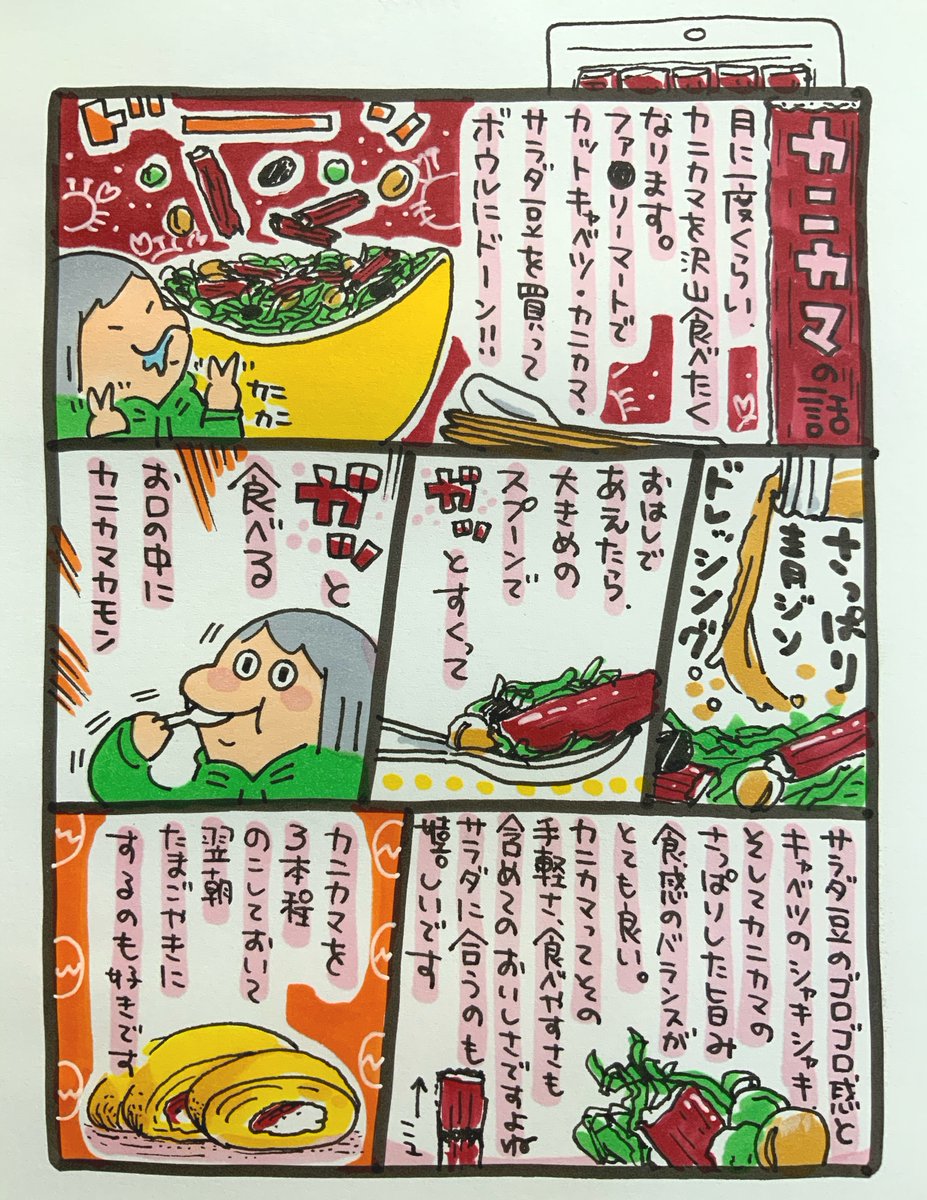 カニカマの話
月に一度くらい、
カニカマを沢山食べたく
なります。
ファ●リーマートで
カットキャベツ・カニカマ・
サラダ豆を買って
ボウルにドーン!!
ドーン
カニ
カニ
さっぱり
青ジソ
ドレッシング。
おはしで
あえたら、
大きめの
スプーンで
ガッとすくって
ガッと
食べる
お口の中に
カニカマカモン
サラダ豆のゴロゴロ感と
キャベツのシャキシャキ
そしてカニカマの
さっぱりした旨み
食感のバランスが
とても良い。
カニカマってその
手軽さ、食べやすさも
含めてのおいしさですよね
サラダに合うのも
嬉しいです
カニカマを
3本程
のこしておいて
翌朝
たまごやきに
するのも好きです